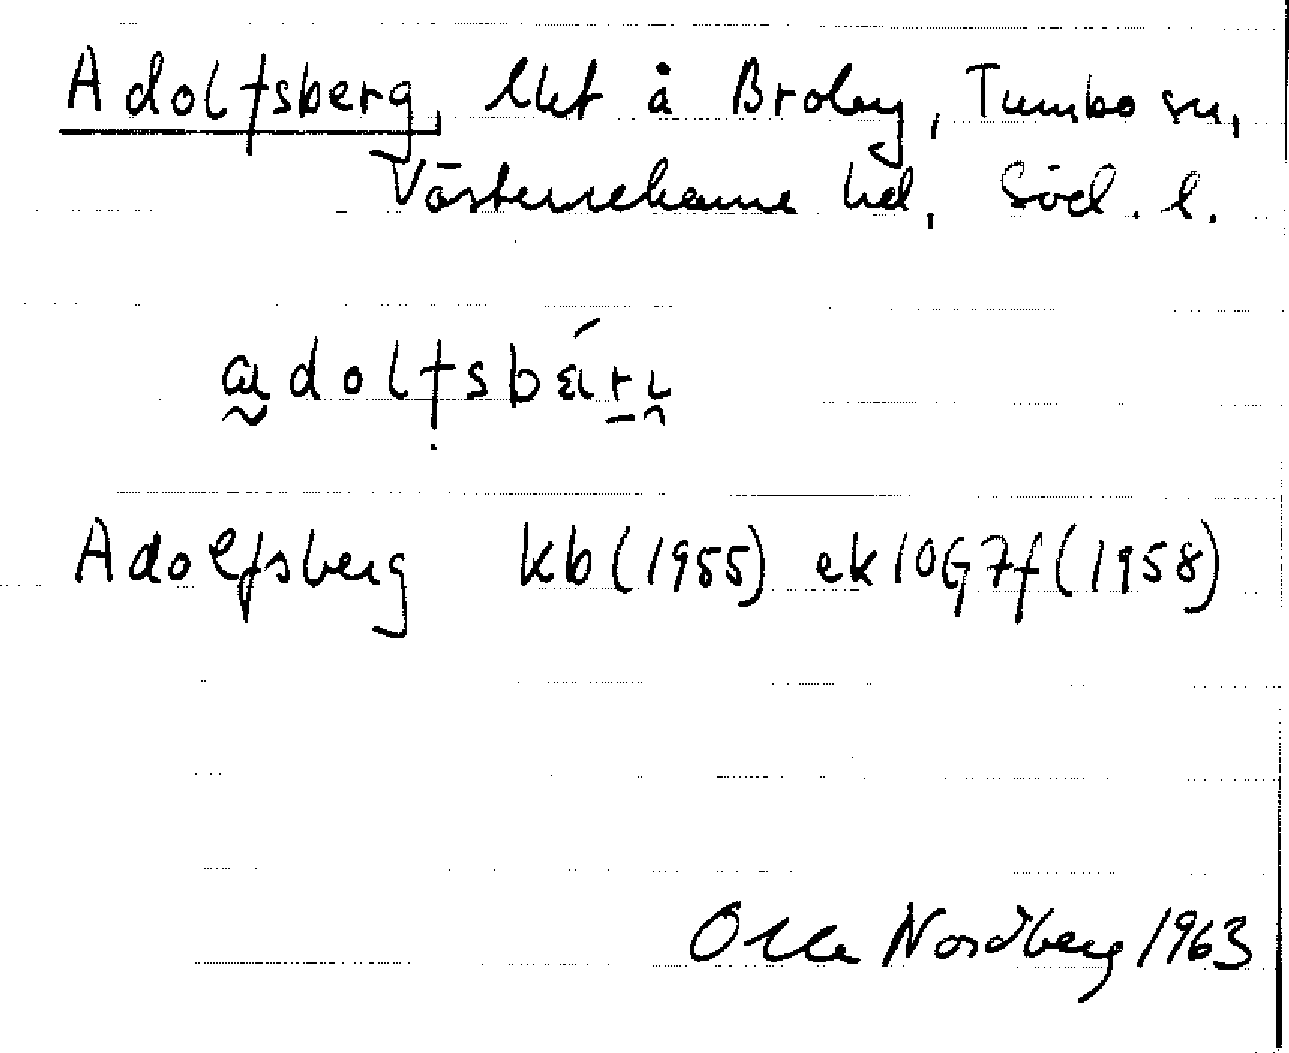 Adolfsberg, lht å Broby, Tumbo sn,
Västerrekarne hd, Söd. l.
adolfsbärj
Adolfsberg kb(1955) ek10G7f(1958)
Olle Nordberg 1963